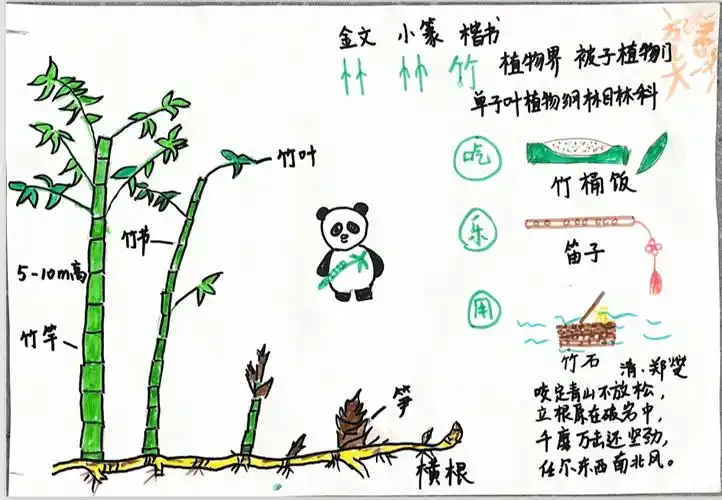 金文 小篆 楷书
竹
植物界 被子植物门
单子叶植物纲林目林科
吃
竹桶饭
乐
笛子
用
竹叶
竹节
5-10m高
竹竿
笋
横根
竹石
清·郑燮
咬定青山不放松，
立根原在破岩中，
千磨万击还坚劲，
任尔东西南北风。